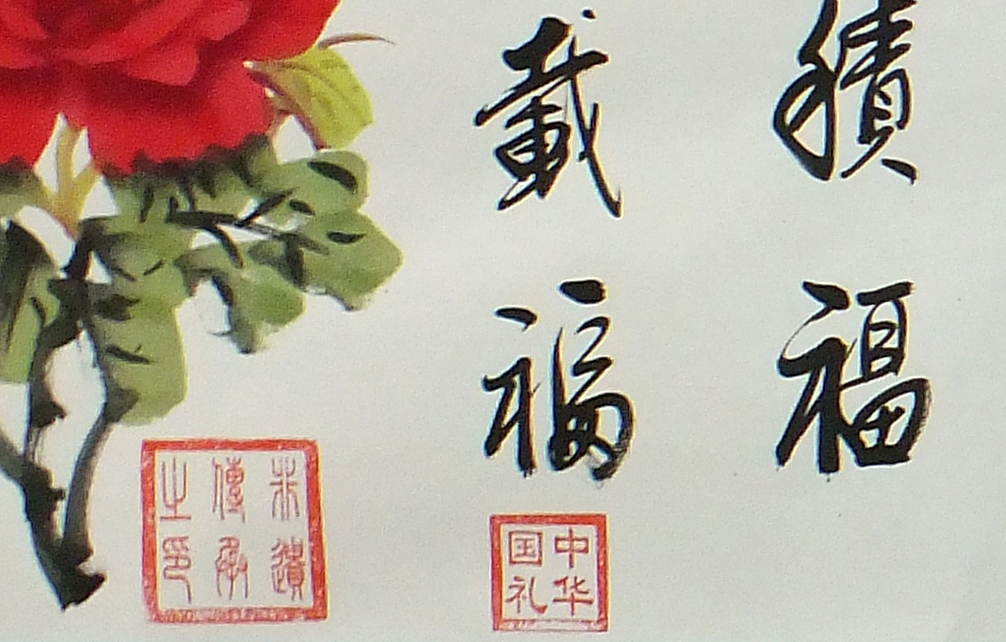 積福
載福
中华
国礼
遺
傳承
之印